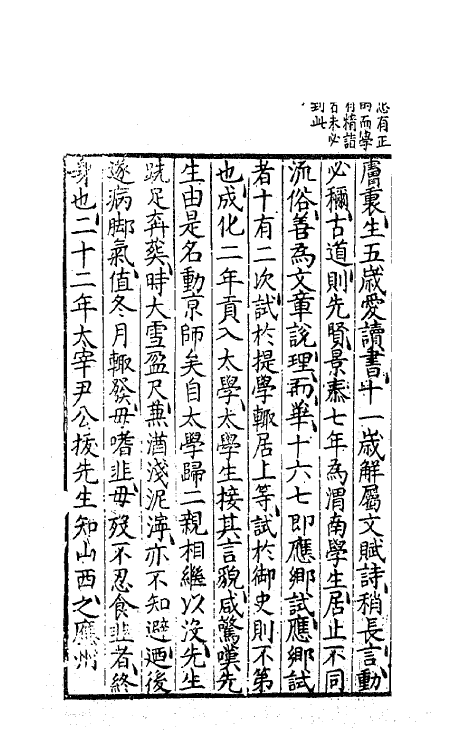 忠有正
的而學
有精詣
者未必
到此
膚裏生五歲愛讀書十一歲解屬文賦詩稍長言動
必稱古道則先賢景泰七年為渭南學生居止不同
流俗善為文章說理而華十六七即應鄉試應鄉試
者十有二次試於提學輒居上等試於御史則不第
也成化二年貢入太學太學生接其言貌咸驚嘆先
生由是名動京師矣自太學歸二親相繼以沒先生
跣足奔葬時大雪盈尺蕪酒淺泥濘亦不知避迺後
遂病脚氣值冬月輒發毋嗜韭毋歿不忍食韭者終
身也二十二年太宰尹公拔先生知山西之應州